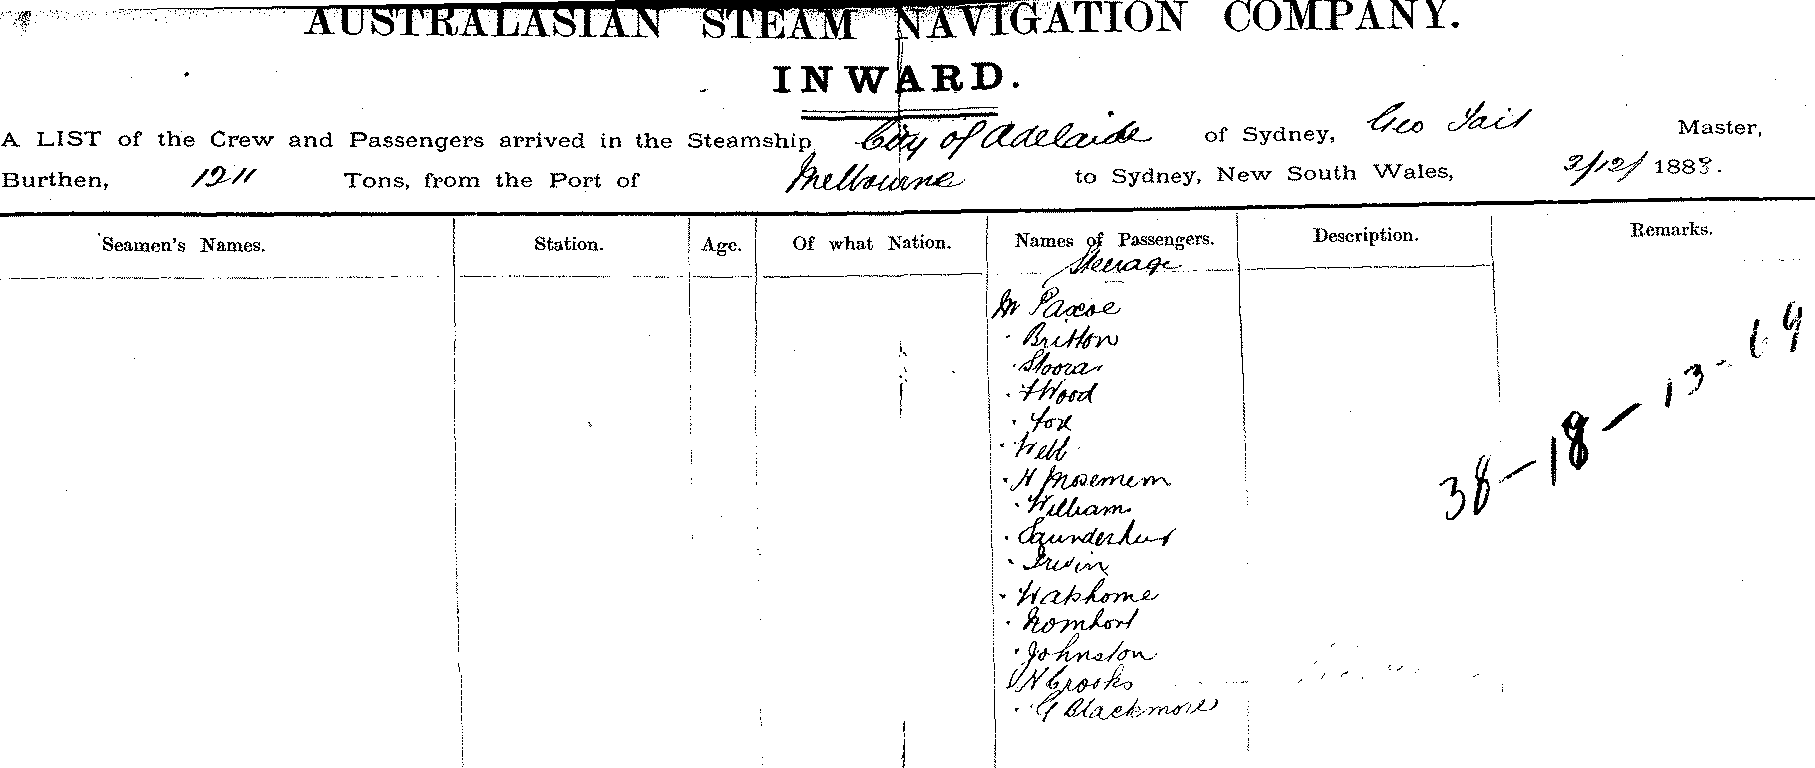 AUSTRALASIAN STEAM NAVIGATION COMPANY.
INWARD.
A LIST of the Crew and Passengers arrived in the Steamship City of Adelaide of Sydney, Geo Tait Master,
Burthen, 1211 Tons, from the Port of Melbourne to Sydney, New South Wales, 3/12/ 1883.
Seamen's Names. Station. Age. Of what Nation. Names of Passengers. Description. Remarks.
Steerage
Mr Pascoe
· Britton
· Wood
· Fox
· Webb
· H
· William
· Irvin
· Johnston
H Crooks
· G Blackmore
38-18-13-69